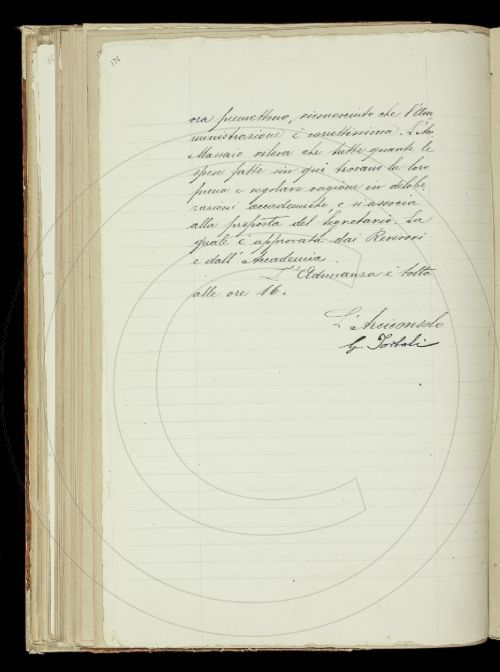 ora premettono, riconosciuto che l'Am
ministrazione è correttissima. L'Ar.
Massaio rileva che tutte quante le
spese fatte sin qui trovano la loro
piena e regolare ragione in delibe
razioni accademiche, e si associa
alla proposta del Segretario. La
quale è approvata dai Revisori
e dall'Accademia.
L'Adunanza è tolta
alle ore 16.
L'Arciconsolo
G. Tortoli